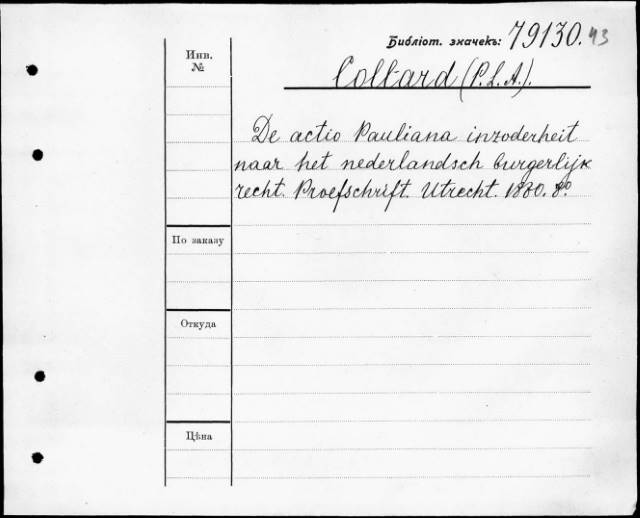 Библіот. значекъ: 79130. 43
Инв.
№
Collard (P. L. A.).
De actio Pauliana inzoderheit
naar het nederlandsch burgerlijk
recht. Proefschrift. Utrecht. 1880. 8.º
По заказу
Откуда
Цѣна